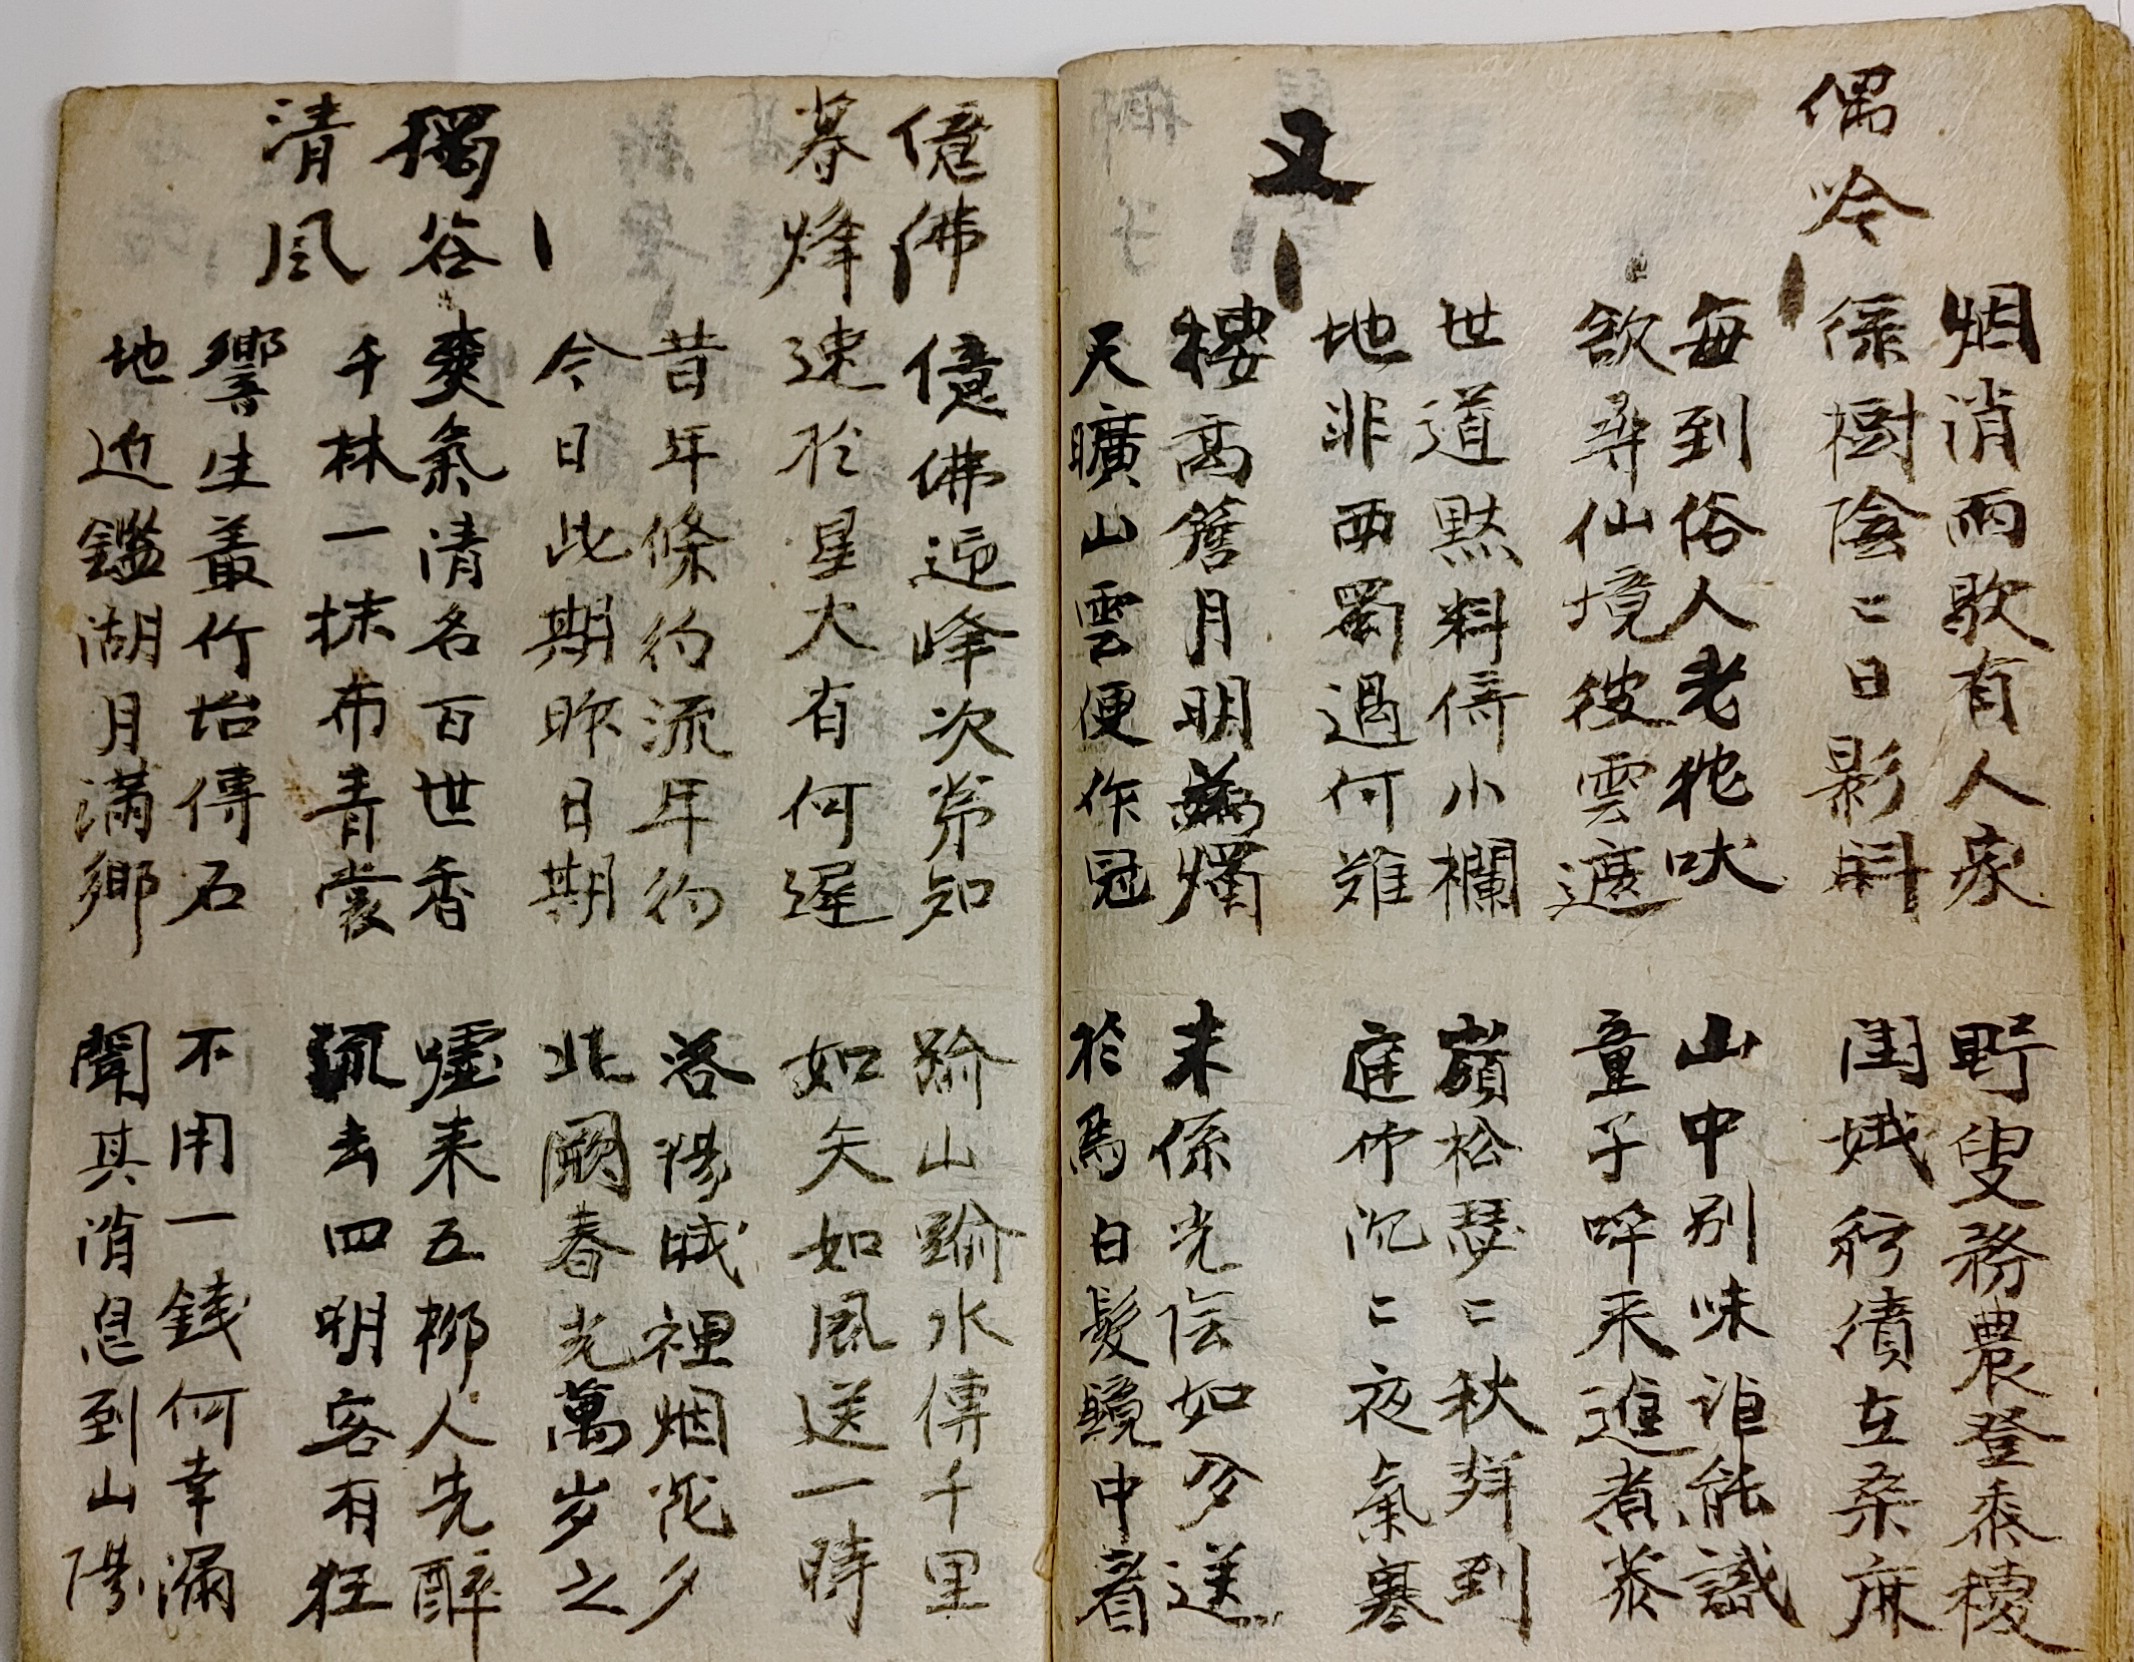 偶吟
烟消雨歇有人家
野叟務農登黍稷
係樹陰〻日影斜
閨娥行績立桑麻
每到俗人老犯吠
山中別味誰能識
欲尋仙境彼雲遮
童子呼来進煮茶
又
世道默料倚小欄
蘋松瑟〻秋拜到
地非西蜀過何難
庭竹沉〻夜氣寒
樓高簷月明為燭
来係光陰如矢送
天曠山雲便作冠
於焉白髮鏡中看
億佛
億佛迎峰次第知
踰山踰水傳千里
暮烽
速於星火有何遲
如矢如風送一時
昔年條約流年約
洛陽城裡烟花夕
今日此期昨日期
北闕春光萬岁之
獨谷
爽氣清名百世香
噓来五柳人先醉
清風
千林一抹布青裳
流去四明客有狂
響生叢竹始傳石
不用一錢何幸漏
地近鑑湖月滿鄉
聞其消息到山陽